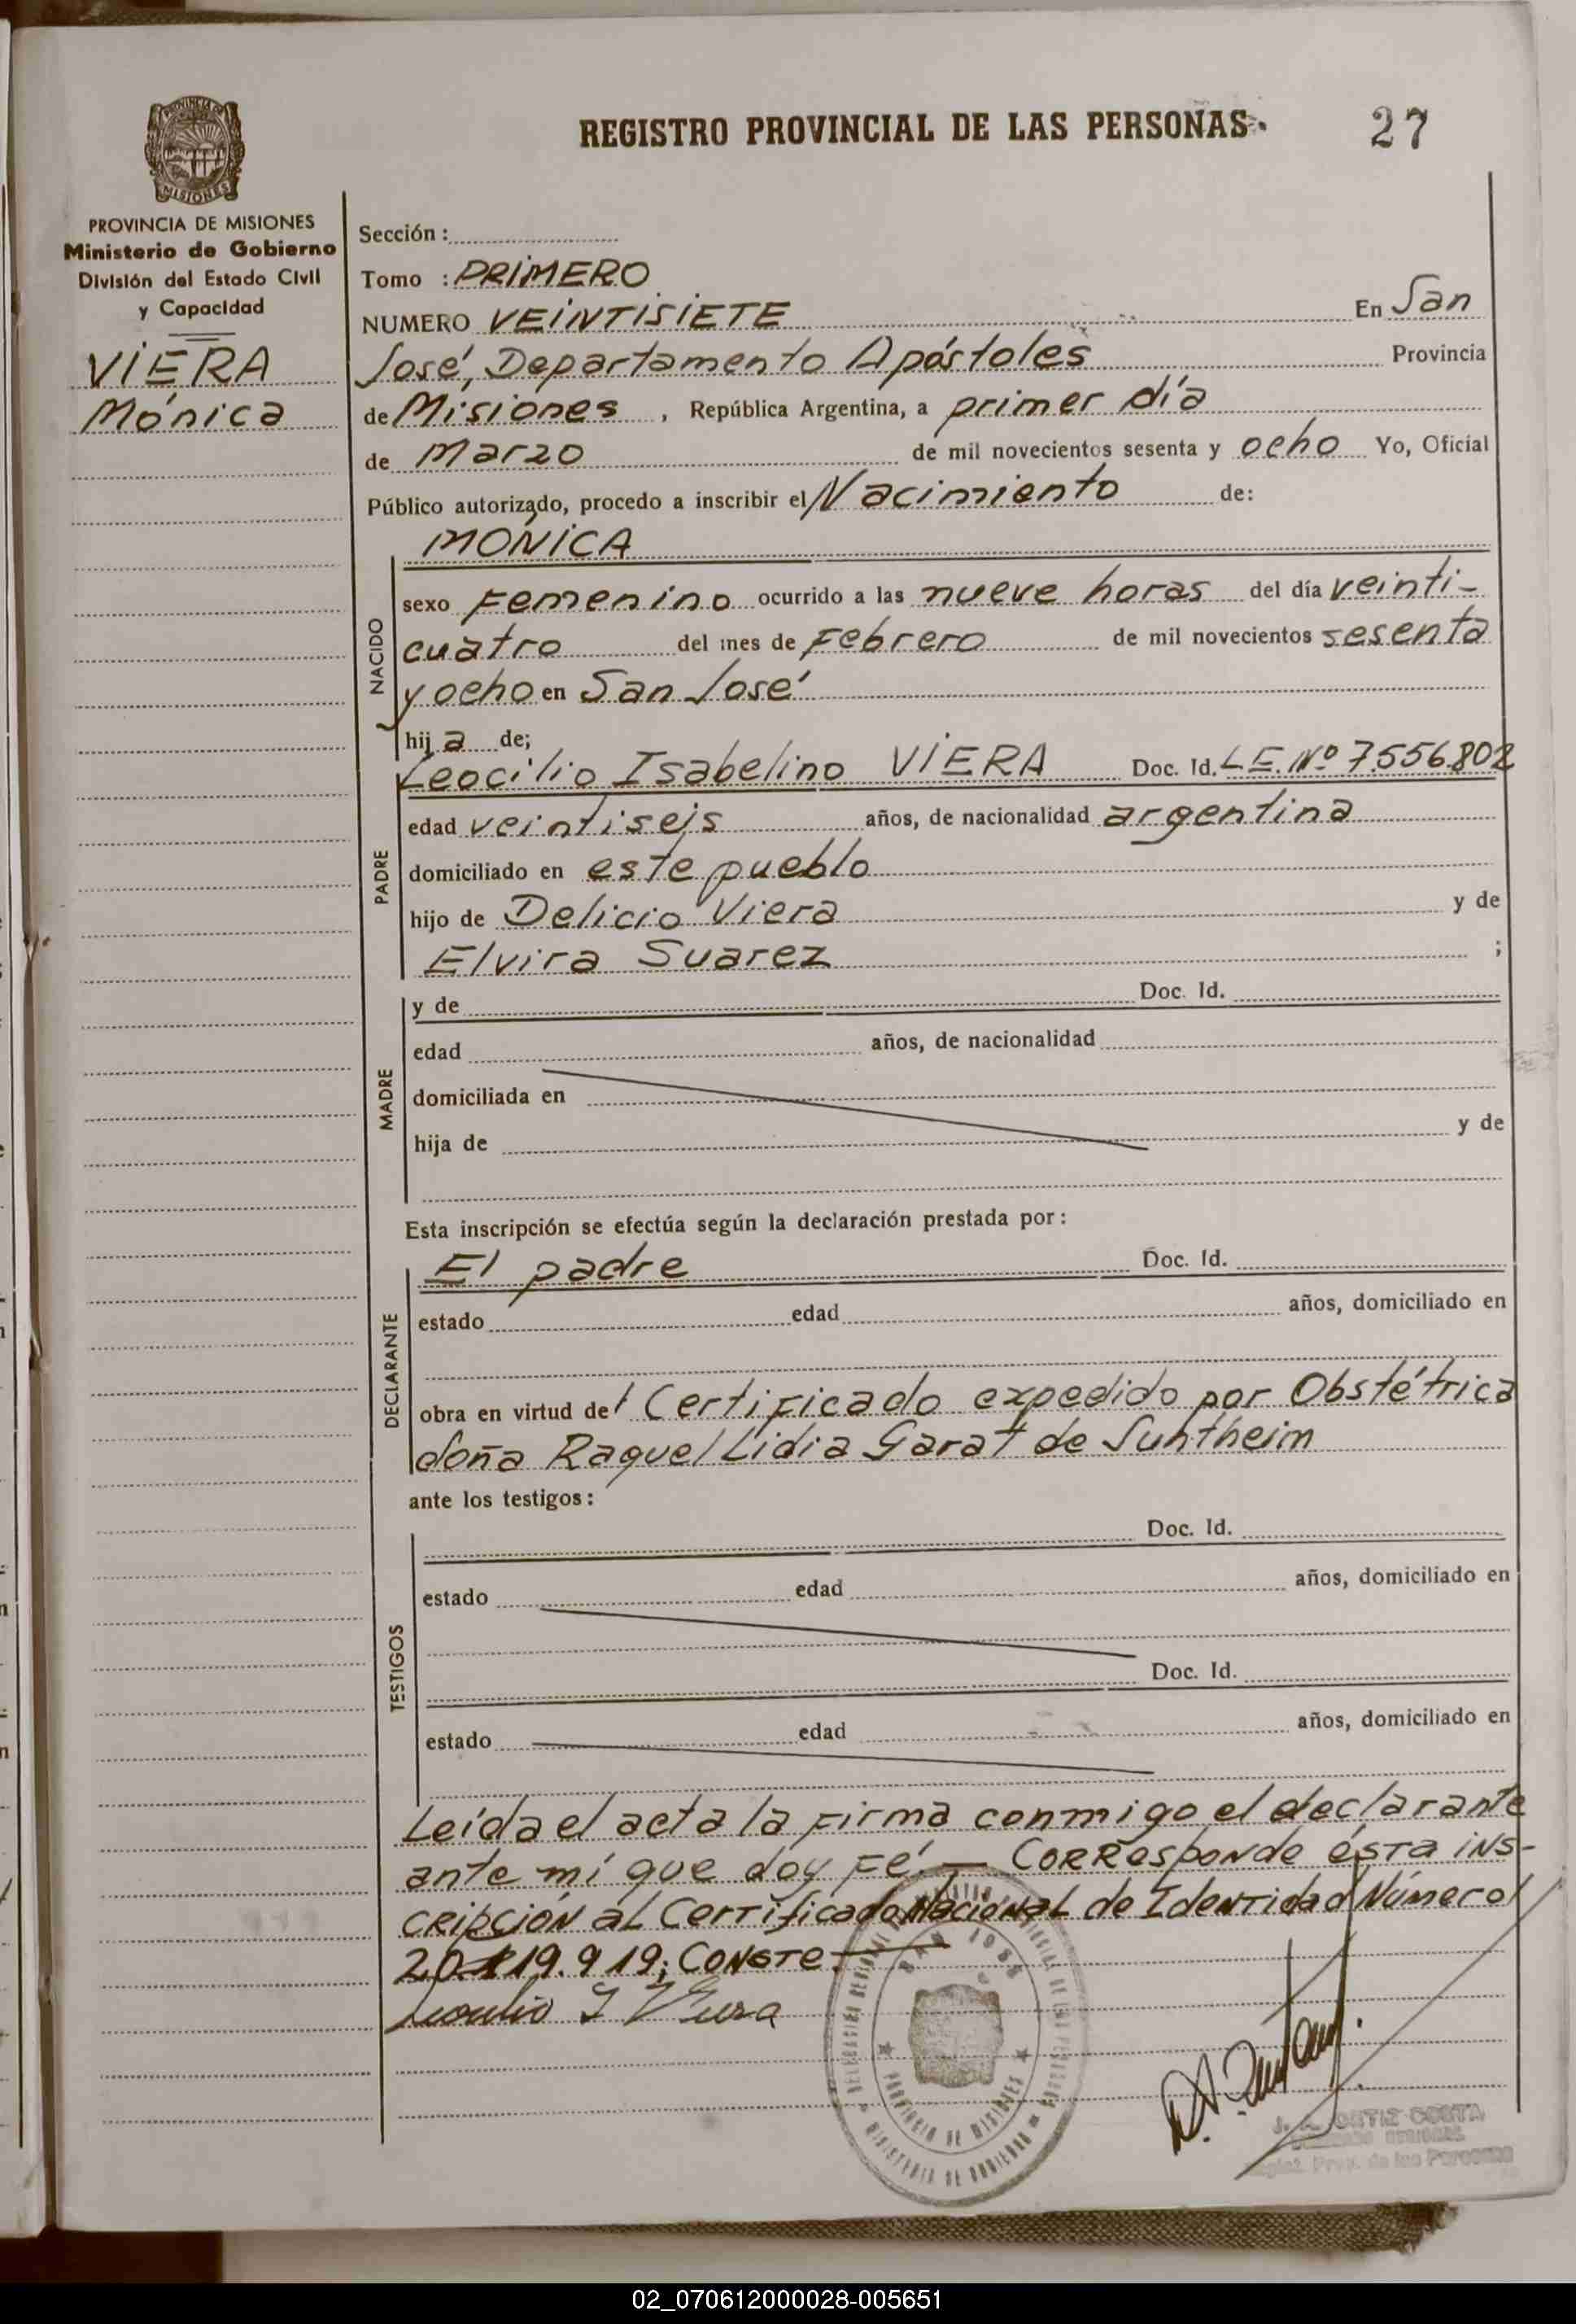 REGISTRO PROVINCIAL DE LAS PERSONAS.
27
PROVINCIA DE MISIONES
Ministerio de Gobierno
División del Estado Civil
y Capacidad
VIERA
Mónica
Sección :
Tomo : PRIMERO
NUMERO VEINTISIETE En San
José, Departamento Apóstoles Provincia
de Misiones , República Argentina, a primer día
de Marzo de mil novecientos sesenta y ocho Yo, Oficial
Público autorizado, procedo a inscribir el Nacimiento de:
MÓNICA
NACIDO
sexo Femenino ocurrido a las nueve horas del día veinti-
cuatro del mes de Febrero de mil novecientos sesenta
y ocho en San José
hij a de;
PADRE
Leocilio Isabelino VIERA Doc. Id. L.E. Nº 7.556.802
edad veintiseis años, de nacionalidad argentina
domiciliado en este pueblo
hijo de Delicio Viera y de
Elvira Suarez ;
MADRE
y de Doc. Id.
edad años, de nacionalidad
domiciliada en
hija de y de
Esta inscripción se efectúa según la declaración prestada por :
DECLARANTE
El padre Doc. Id.
estado edad años, domiciliado en
obra en virtud del Certificado expedido por Obstétrica
doña Raquel Lidia Garat de Suntheim
ante los testigos :
TESTIGOS
Doc. Id.
estado edad años, domiciliado en
Doc. Id.
estado edad años, domiciliado en
Leída el acta la firma conmigo el declarante
ante mí que doy Fé. — CORResponde ésta ins-
cripción al Certificado Nacional de Identidad Número
20.119.919; CONSTE.
PROVINCIA DE MISIONES
MINISTERIO DE GOBIERNO
ORTIZ COSTA
Prov. de las Personas
02_070612000028-005651